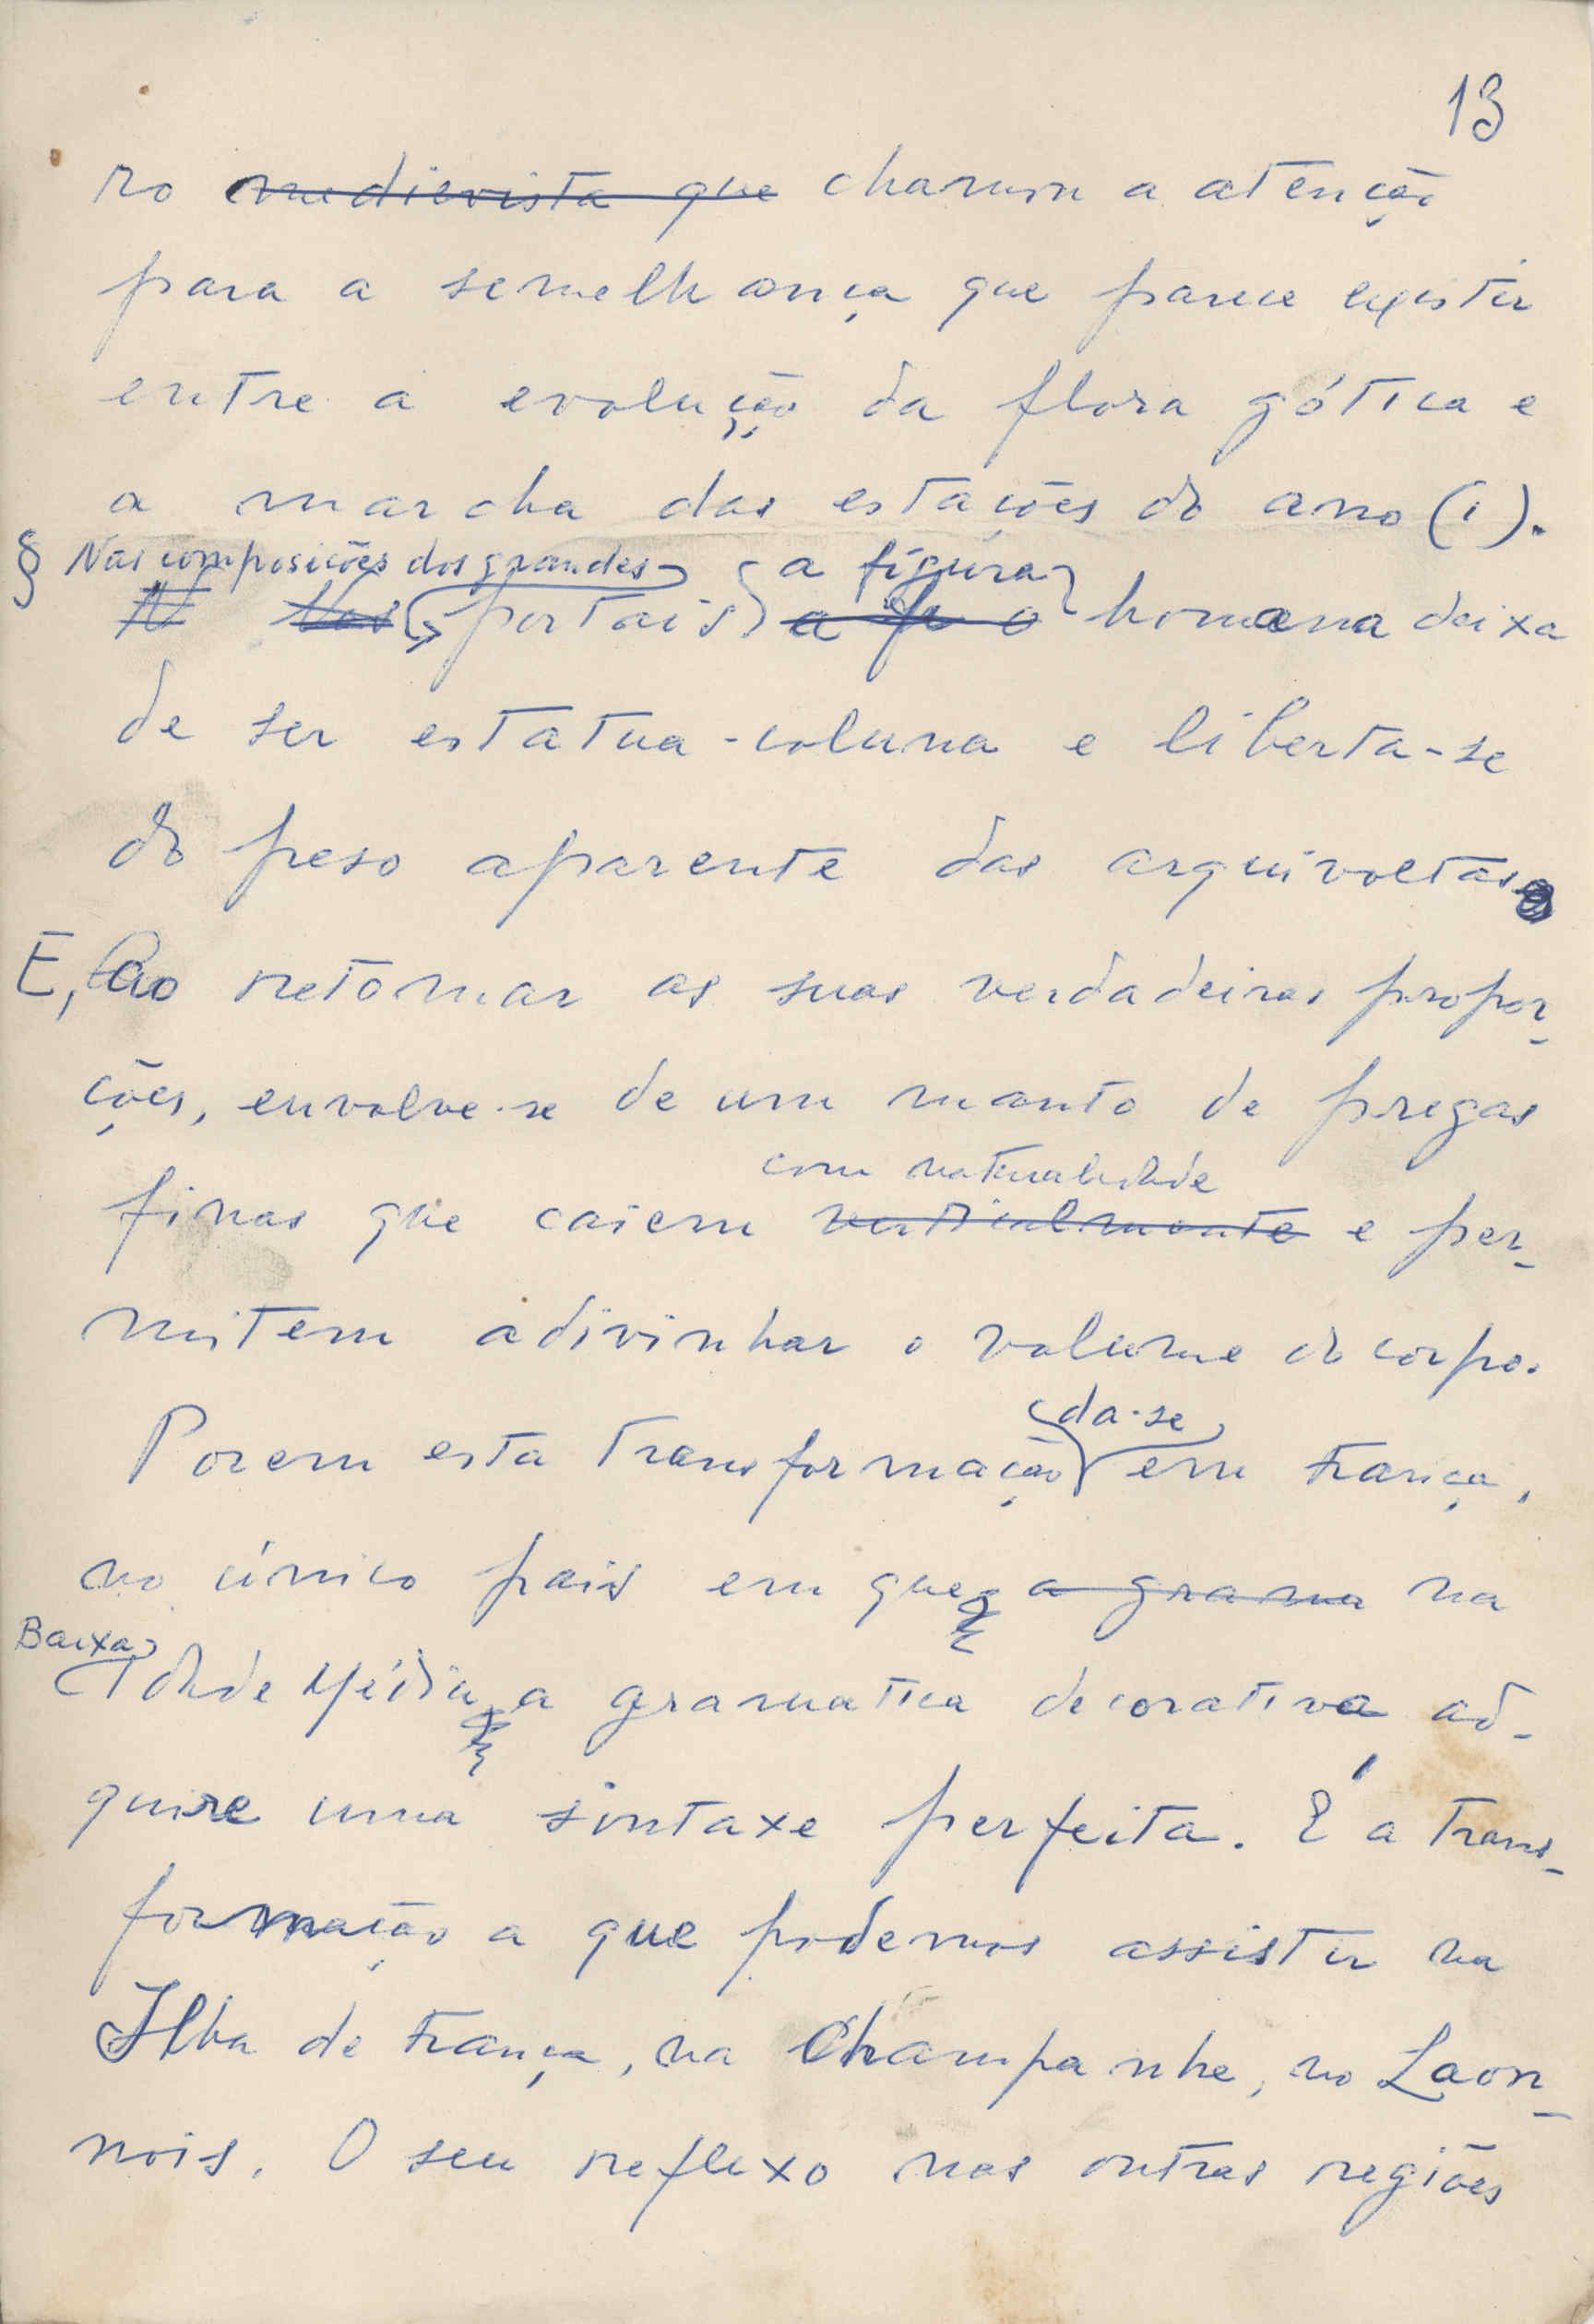 13
ro medievista que chamam a atenção
para a semelhança que parece existir
entre a evolução da flora gótica e
a marcha das estações do ano (1).
§ Nas composições dos grandes a figura
N Nos portais a fi o humana deixa
de ser estatua-coluna e liberta-se
do peso aparente das arquivoltas
E, ao retomar as suas verdadeiras propor-
ções, envolve-se de um manto de pregas
com naturalidade
finas que caiem verticalmente e per-
mitem adivinhar o volume do corpo.
da-se
Porem esta transformação em França,
no único pais em que a grama na
Baixa
Idade Média a gramatica decorativa ad-
quire uma sintaxe perfeita. É a trans-
formação a que podemos assistir na
Ilha de França, na Champanhe, no Laon-
nois. O seu reflexo nas outras regiões